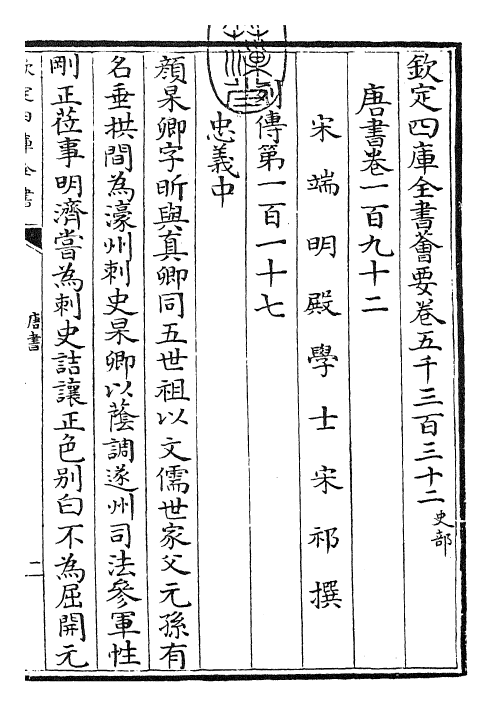 欽定四庫全書薈要卷五千三百三十二 史部
唐書卷一百九十二
宋端明殿學士宋祁撰
列傳第一百一十七
忠義中
顔杲卿字昕與真卿同五世祖以文儒世家父元孫有
名垂拱間為濠州刺史杲卿以蔭調遂州司法參軍性
剛正莅事明濟嘗為刺史詰讓正色别白不為屈開元
欽定四庫全書
唐書